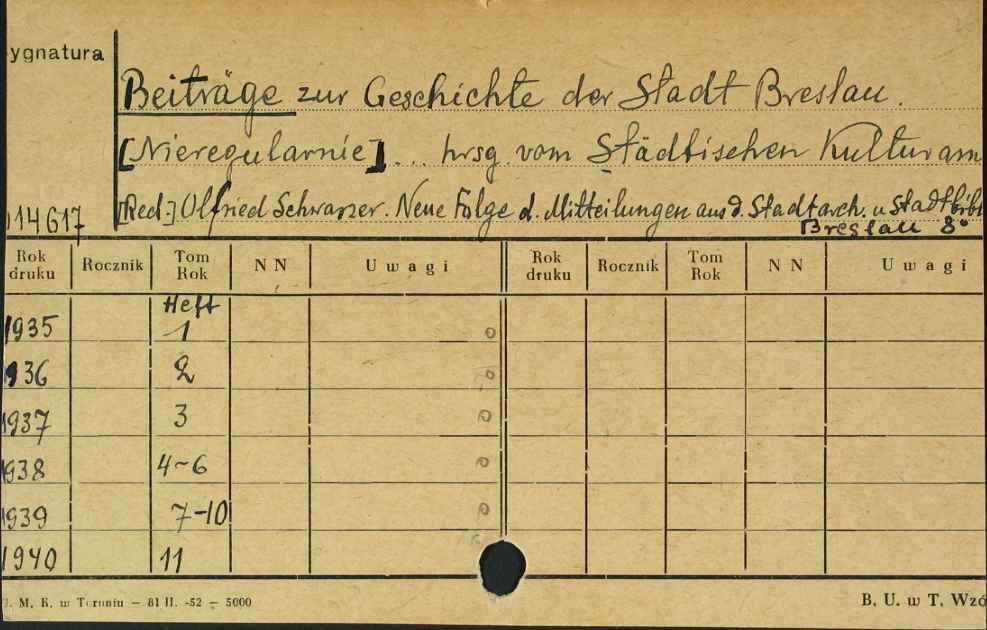 ygnatura
Beiträge zur Geschichte der Stadt Breslau.
[Nieregularnie] ... hrsg. vom Städtischen Kulturam
[Red.:] Olfried Schwarzer. Neue Folge d. Mitteilungen aus d. Stadtarch. u Stadtbibl
14617
Breslau 8°
Rok druku Rocznik Tom Rok NN Uwagi Rok druku Rocznik Tom Rok NN Uwagi
Heft
1935 1
1936 2
1937 3
1938 4-6
1939 7-10
1940 11
. M. K. w Toruniu — 81 II. -52 — 5000 B. U. w T. Wzó